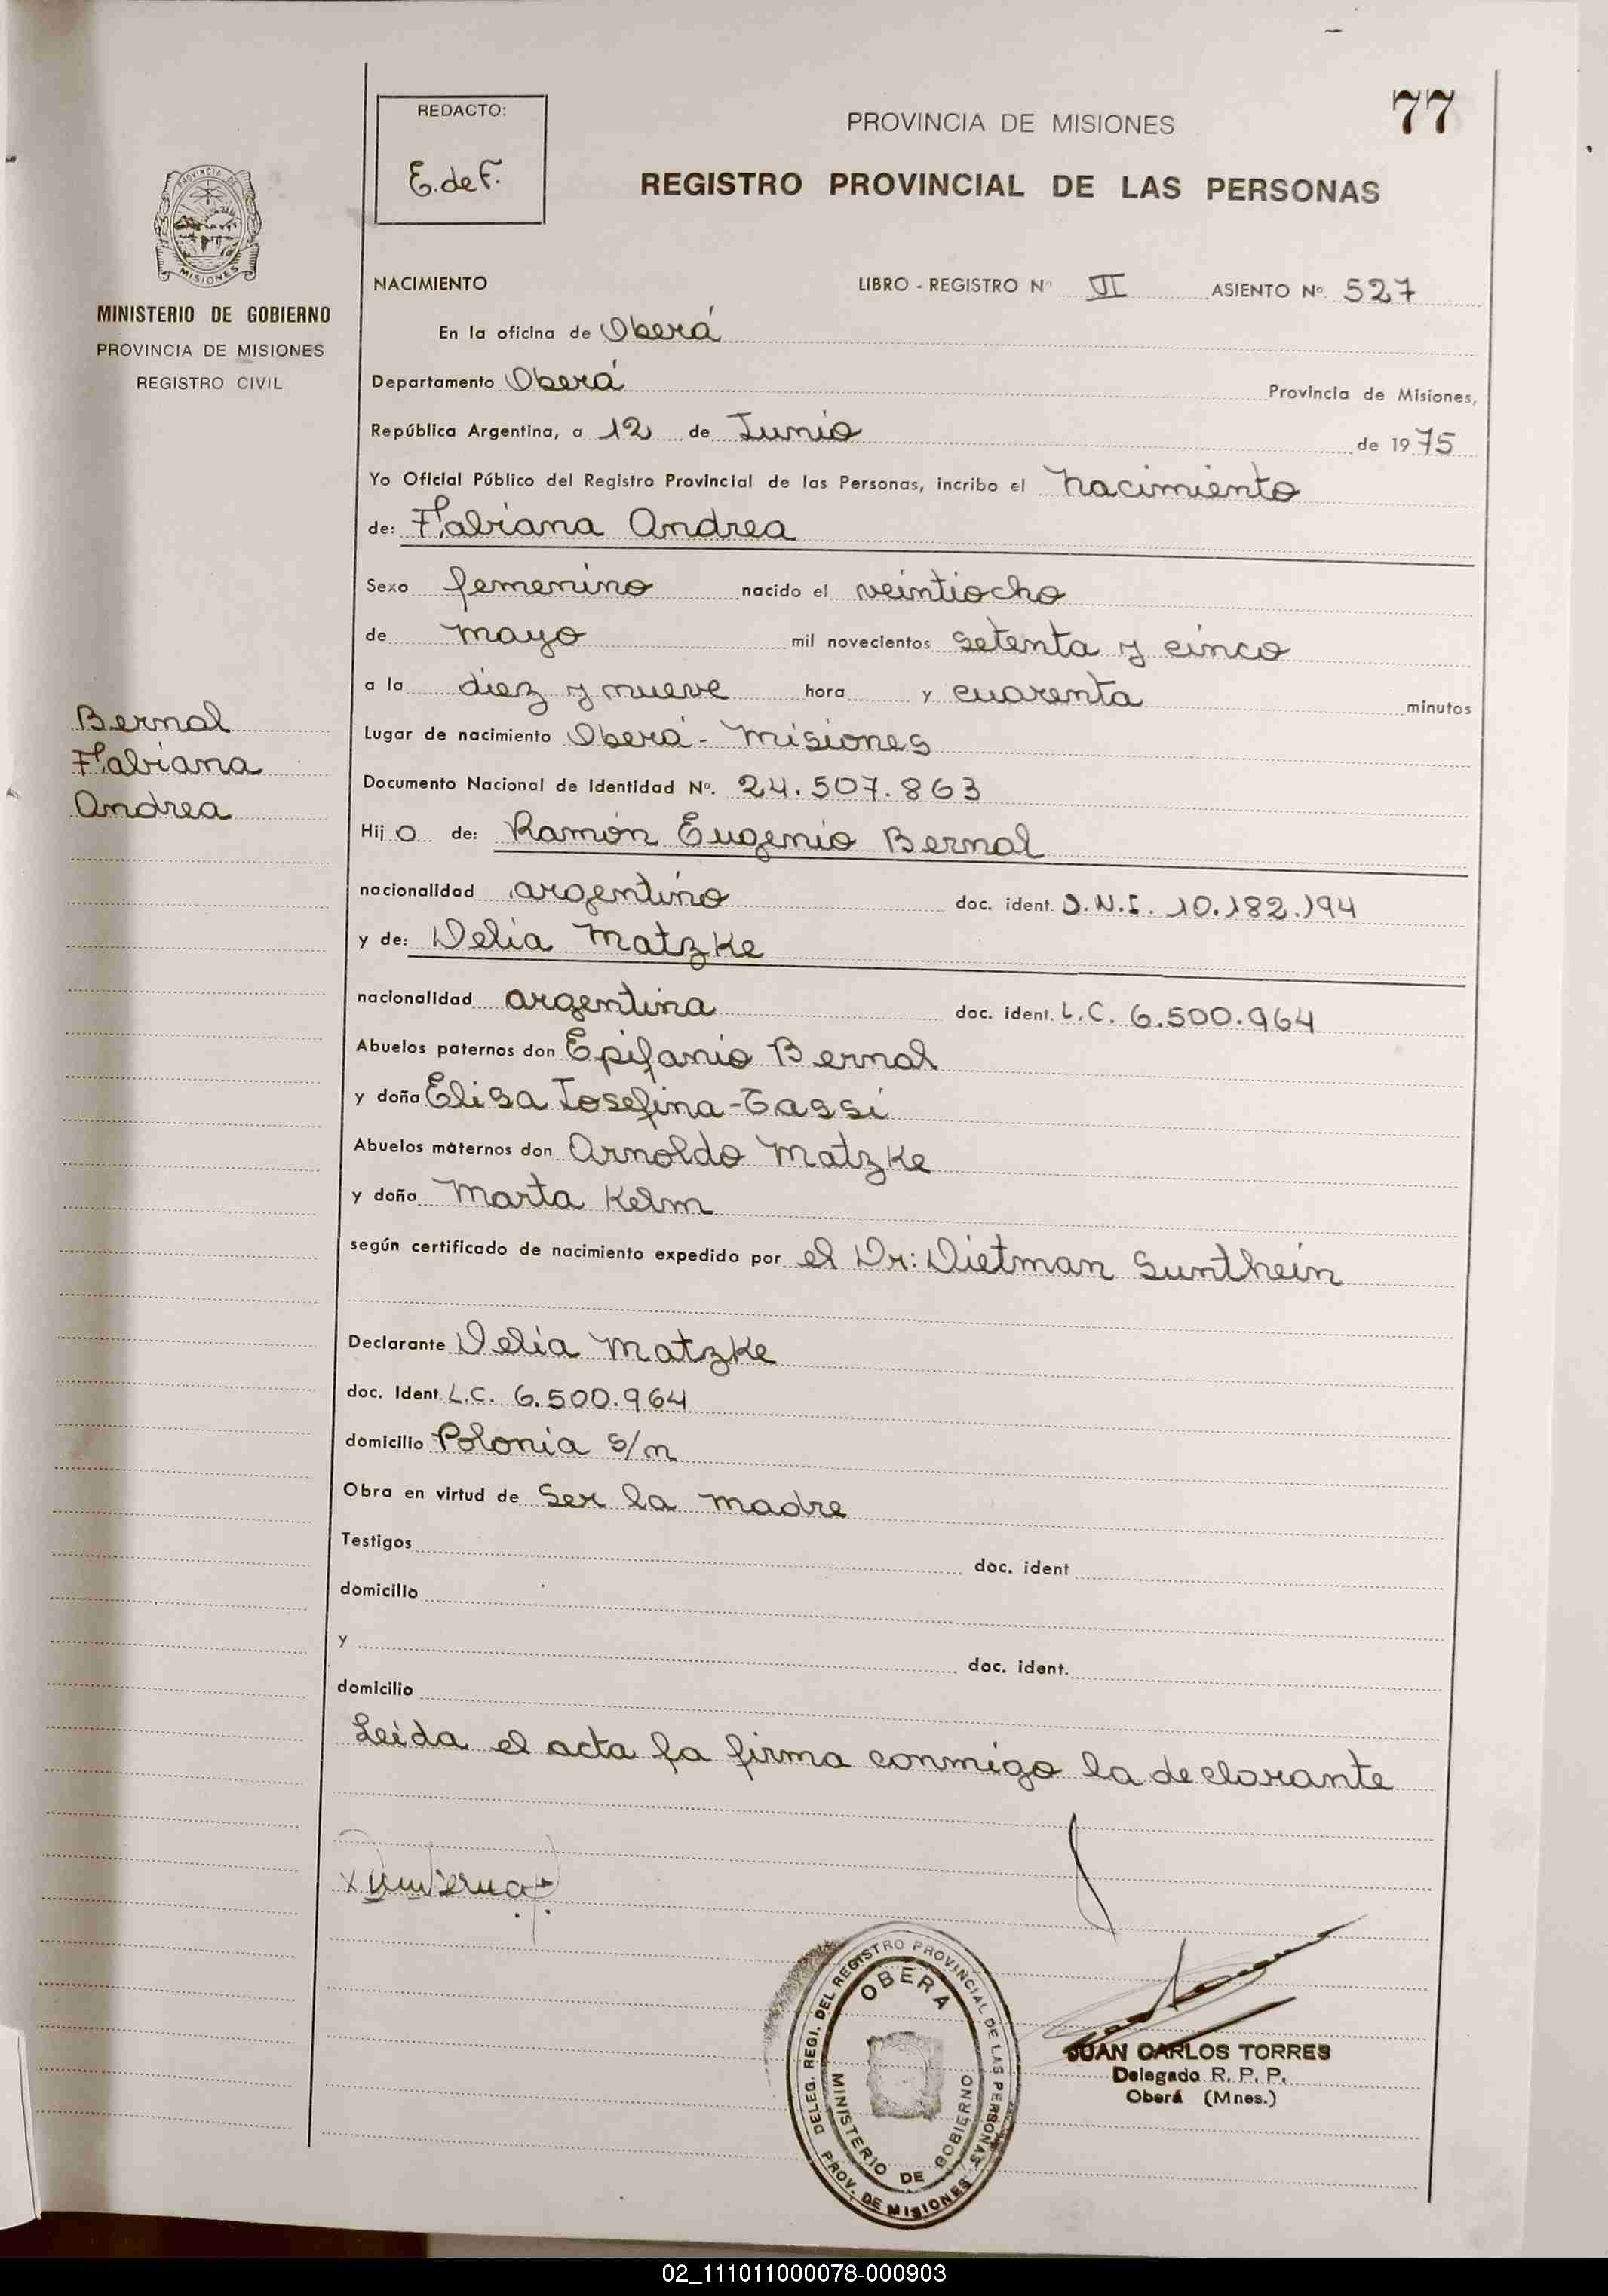 77
REDACTO:
E. de F.
PROVINCIA DE MISIONES
REGISTRO PROVINCIAL DE LAS PERSONAS
PROVINCIA DE
MISIONES
MINISTERIO DE GOBIERNO
PROVINCIA DE MISIONES
REGISTRO CIVIL
Bernal
Fabiana
Andrea
NACIMIENTO LIBRO - REGISTRO Nº II ASIENTO Nº 527
En la oficina de Oberá
Departamento Oberá Provincia de Misiones,
República Argentina, a 12 de Junio de 1975
Yo Oficial Público del Registro Provincial de las Personas, incribo el nacimiento
de: Fabiana Andrea
Sexo femenino nacido el veintiocho
de mayo mil novecientos setenta y cinco
a la diez y nueve hora y cuarenta minutos
Lugar de nacimiento Oberá - Misiones
Documento Nacional de Identidad Nº. 24.507.863
Hij a de: Ramón Eugenio Bernal
nacionalidad argentino doc. ident. D.N.I. 10.182.194
y de: Delia Matzke
nacionalidad argentina doc. ident. L.C. 6.500.964
Abuelos paternos don Epifanio Bernal
y doña Elisa Josefina - Tassi
Abuelos maternos don Arnoldo Matzke
y doña Marta Kelm
según certificado de nacimiento expedido por el Dr: Dietman Sunthein
Declarante Delia Matzke
doc. Ident. L.C. 6.500.964
domicilio Polonia s/n
Obra en virtud de Ser la madre
Testigos doc. ident
domicilio
y doc. ident.
domicilio
Leida el acta la firma conmigo la declarante
DELEG. REGI. DEL REGISTRO PROVINCIAL DE LAS PERSONAS
PROV. DE MISIONES
OBERA
MINISTERIO DE GOBIERNO
JUAN CARLOS TORRES
Delegado R. P. P.
Oberá (Mnes.)
02_111011000078-000903